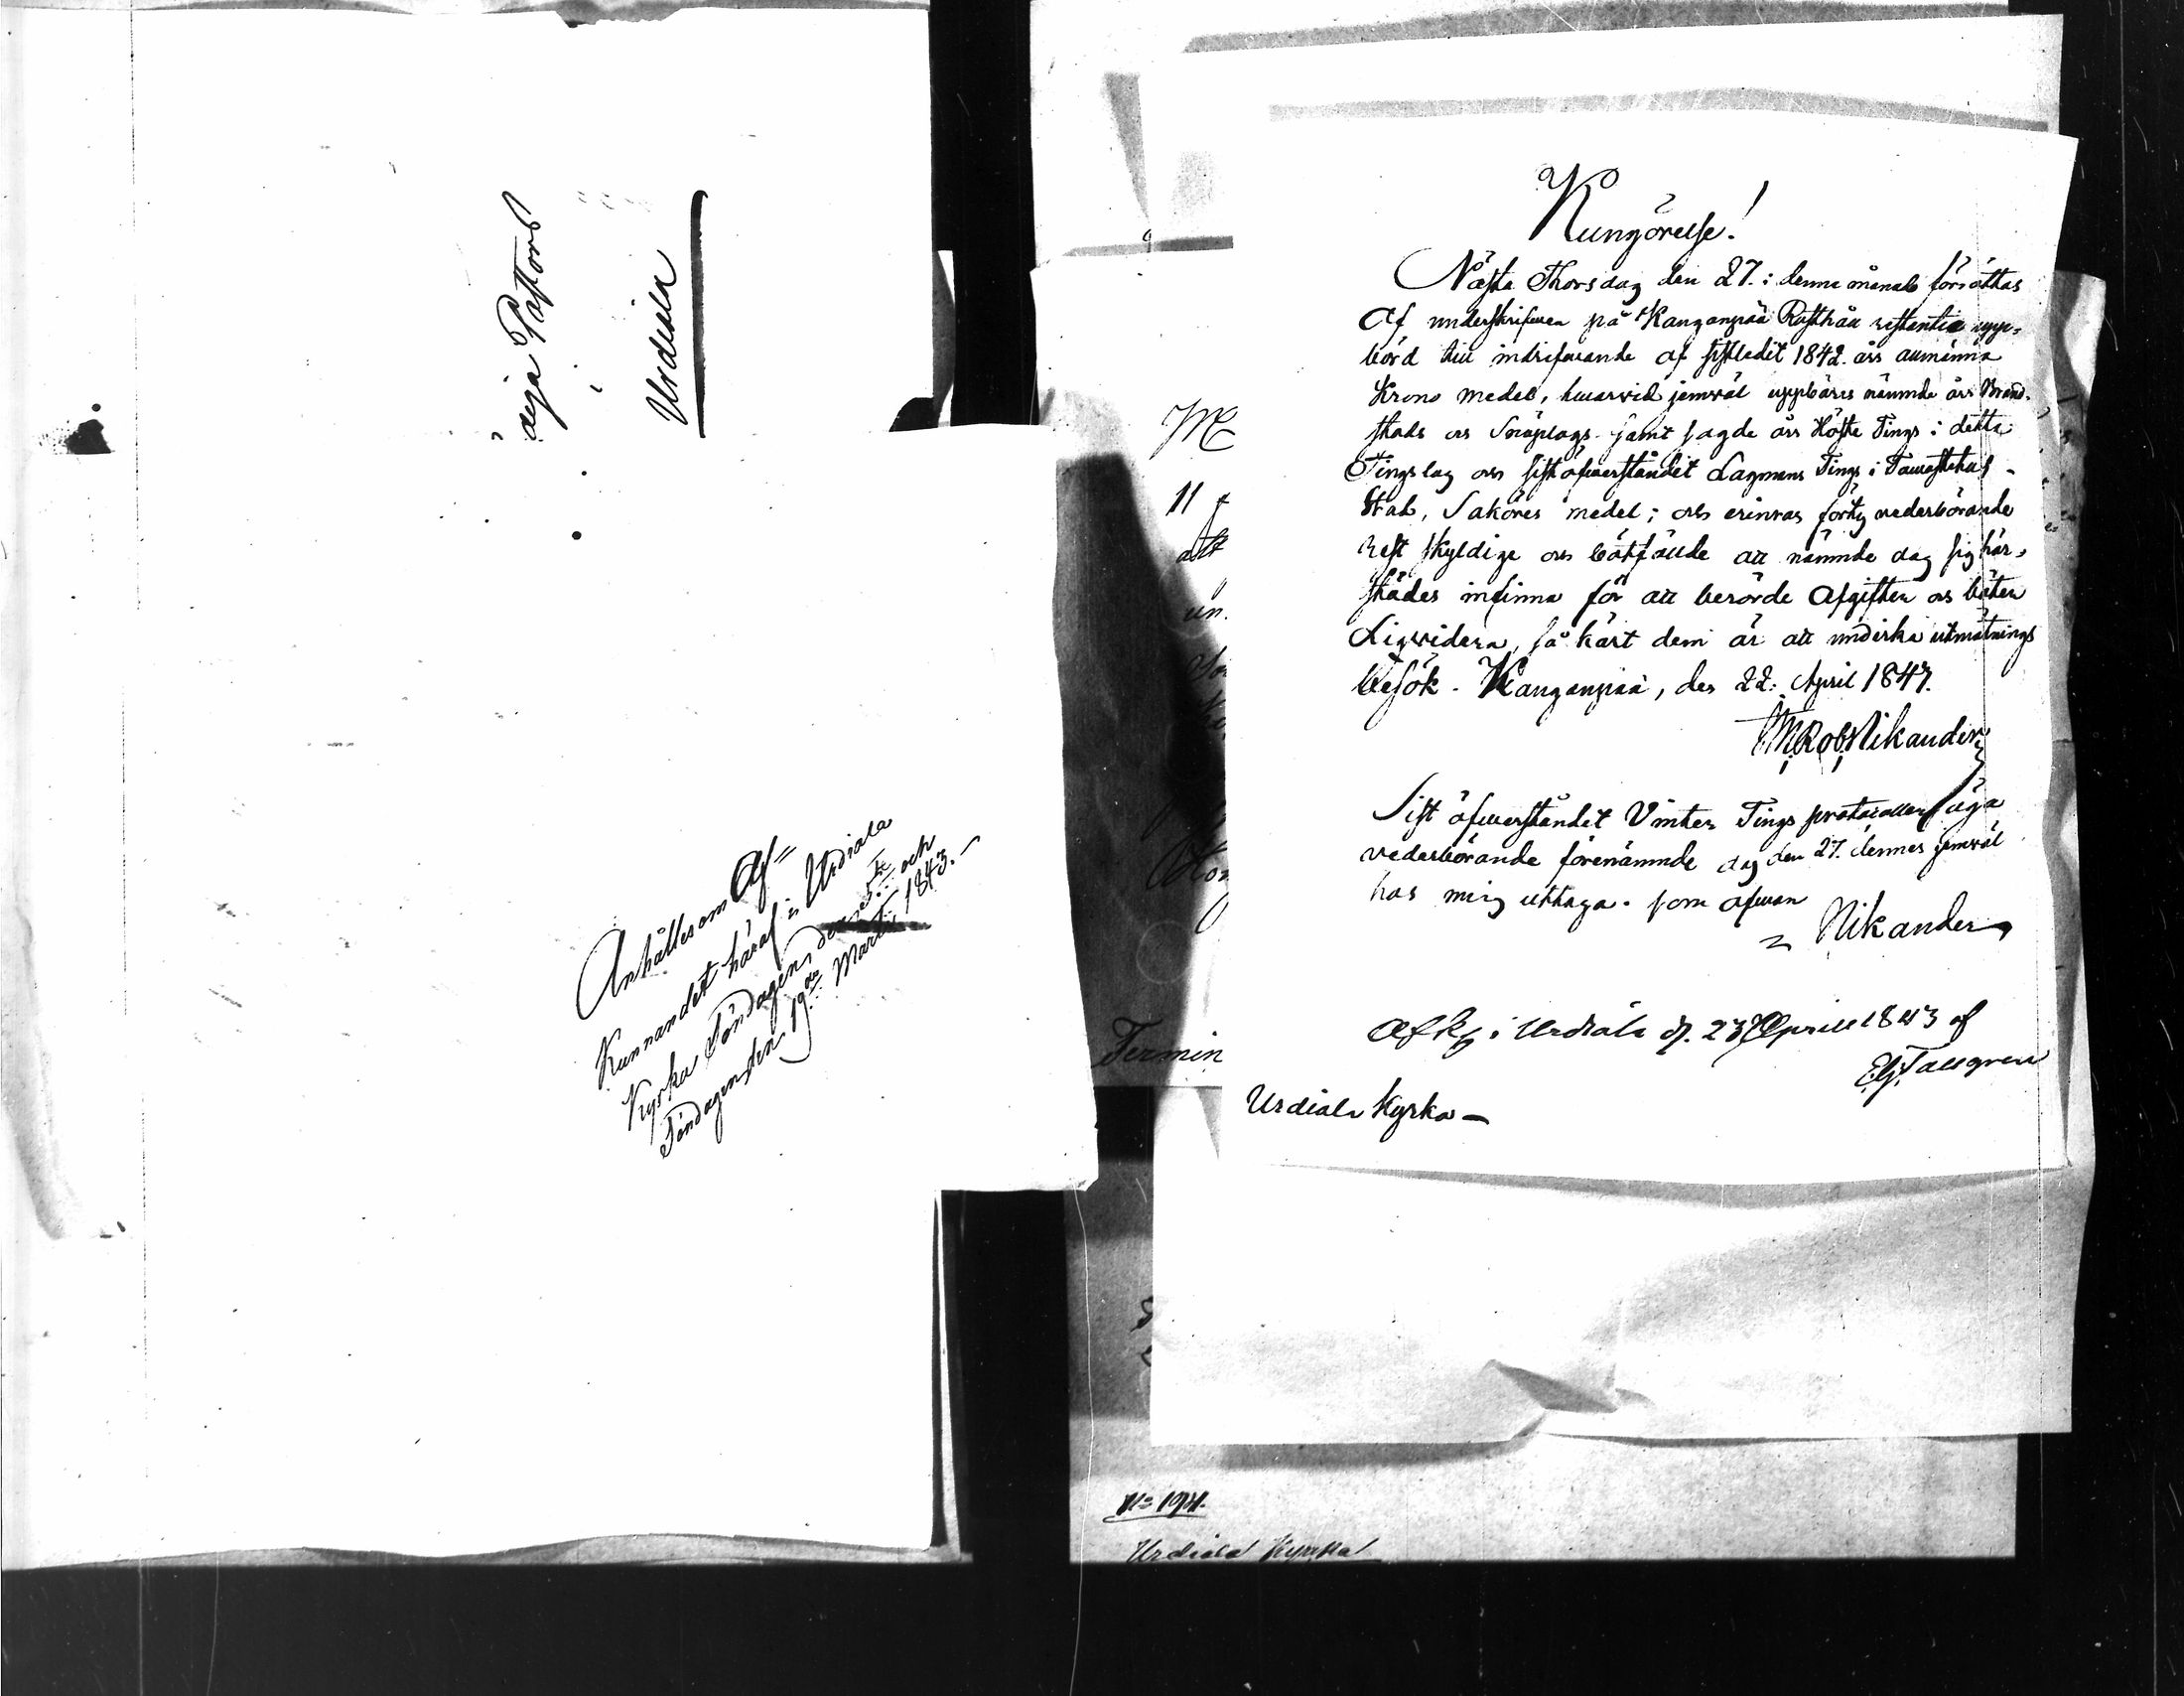 äga Pastors
i
Urdiala
Anhålles om Af=
Kunnandet häraf i Urdiala
Kyrka Söndagen den 5te och
Söndagen den 19de Martii 1843.
Kungörelse!
Nästa Thorsdag den 27. i denne månad förrättas
Af underskrifwen på Kanganpää Rusthåll restantie upp=
börd till indrifwande af sistledit 1842. års allmänna
Krono medel, hwarwid jemwäl uppbäres nämnde års Brand=
stads och Snöplogs- samt sagde års Höste Tings i detta
Tingslag och sist öfwerståndet Lagmans Tings i Tawastehus
Stad, Saköres medel; och erinras förty wederbörande
rest skyldige och bötfällde att nämnde dag sig här=
städes infinna för att berörde Afgifter och böter
Liqvidera, så kärt dem är att undvika utmätnings
besök. Kanganpää, den 22. April 1843.
Rob Nikander
Sist öfwerståndet Vinter Tings protocoller äga
wederbörande förenämnde dag den 27. dennes jemwäl
hos mig uttaga. som ofwan
Nikander
Afk i Urdiala d. 23 Aprill 1843 af
EG Tallgren
Urdiala Kyrka
M
11
att
un.
Termin
Urdiala Kyrka